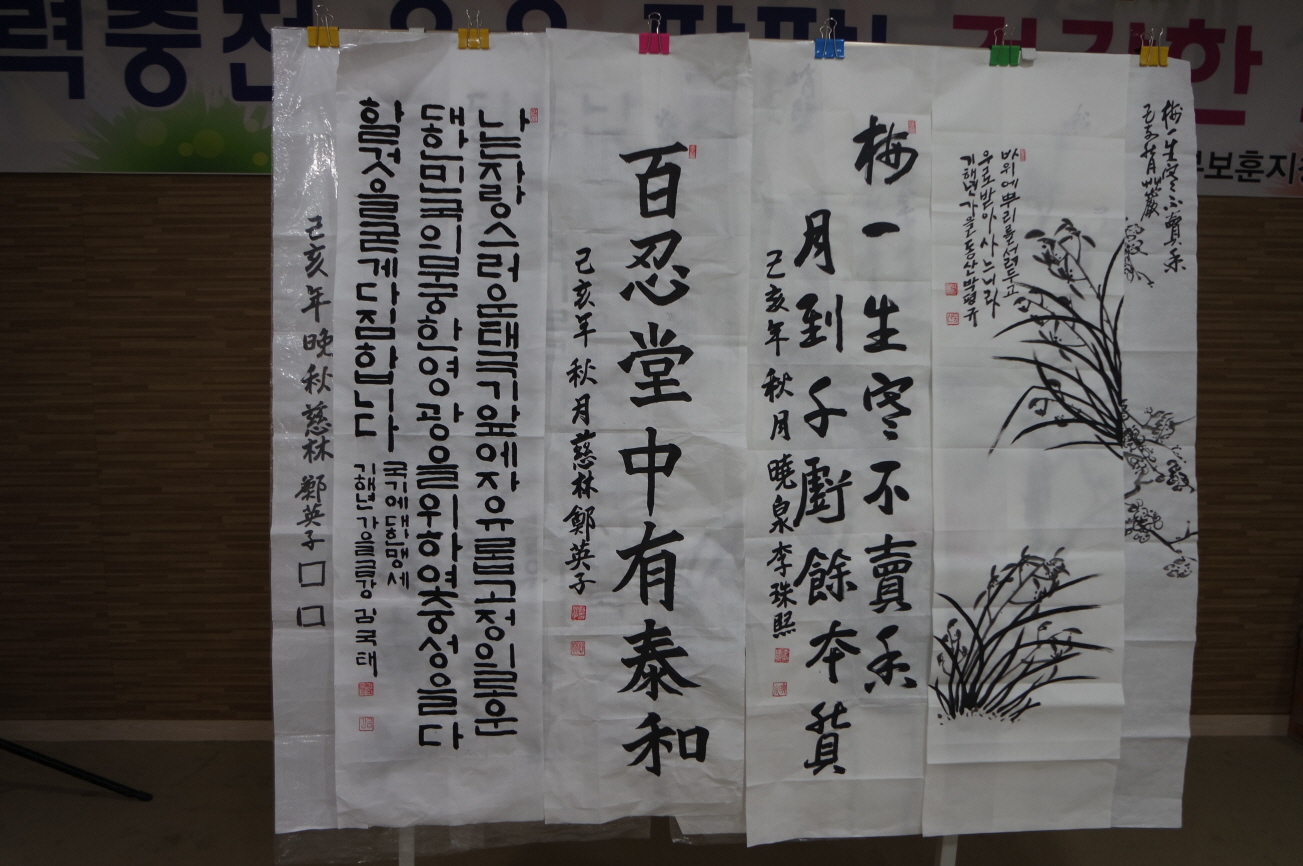 력충전
한
부보훈지
梅一生寒不賣香
바위에뿌리를서려두고
우로받아사느니라
기해년가을동산박평규
梅一生寒不賣香
月到千虧餘本質
己亥年 秋月 曉泉 李珠熙
百忍堂中有泰和
己亥年 秋月 慈林 鄭英子
나는자랑스러운태극기앞에자유롭고정의로운
대한민국의무궁한영광을위하여충성을다
할것을굳게다짐합니다
국기에대한맹세
기해년 가을 김국태
己亥年晚秋慈林 鄭英子